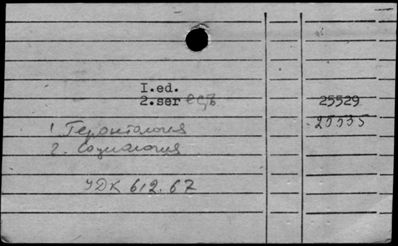 I.ed.
2.ser есть 25529
1. Геронтология 25535
2. Социология
УДК 612.67